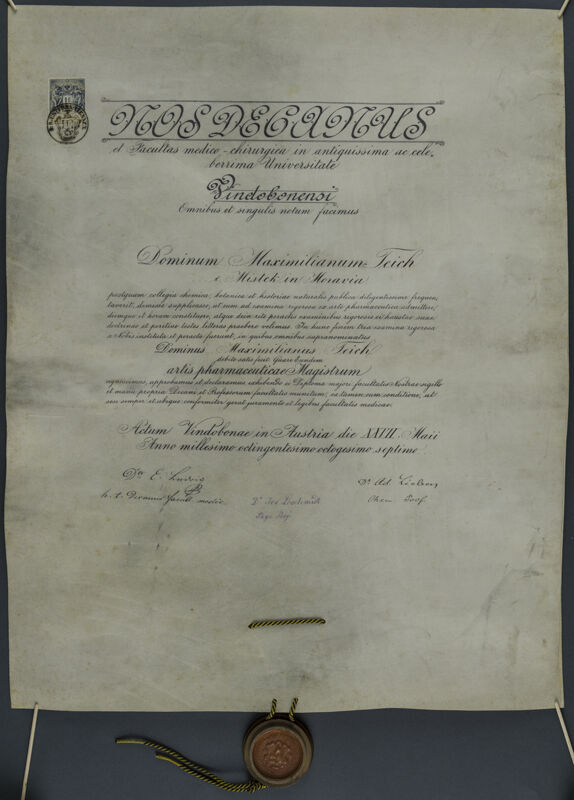 NOS DECANUS
et Facultas medico-chirurgica in antiquissima ac cele,
berrima Universitate
Vindobonensi
Omnibus et singulis notum facimus
Dominum Maximilianum Teich
e Mistek in Moravia
postquam collegia chemica, botanica et historiae naturalis publica diligentissime frequen,
taverit, demisse supplicasse, ut eum ad examina rigorosa ex arte pharmaceutica admittere,
diemque et horam constituere, atque dein rite peractis examinibus rigorosis et haustae suae
doctrinae et peritiae testes litteras praebere velimus. In hunc finem tria examina rigorosa
a Nobis instituta et peracta fuerunt, in quibus omnibus supranominatus
Dominus Maximilianus Teich
debite satis fecit. Quare Eundem
artis pharmaceuticae Magistrum
agnoscimus, approbamus et declaramus exhibendo ei Diploma majori facultatis Nostrae sigillo
et manu propria Decani et Professorum facultatis munitum; ea tamen cum conditione, ut
sese semper et ubique conformiter gerat juramento et legibus facultatis medicae.
Actum Vindobonae in Austria die XXVII. Maii
Anno millesimo octingentesimo octogesimo septimo
Dr E. Ludwig
h. t. Decanus facult. medic.
Dr Ad. Lieben
Chem. Prof.